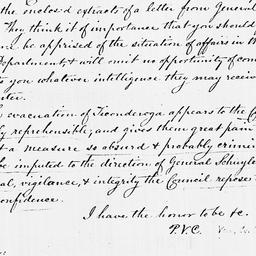 the enclos'd extracts of a letter from General
They think it of importance that you should
be apprised of the situation of affairs in the
Department & will omit no opportunity of com
to you whatever intelligence they may receive
ter.
evacuation of Ticonderoga appears to the C
ly reprehensible, and gives them great pain
t a measure so absurd & probably crimin
be imputed to the direction of General Schuyle
al, vigilance, & integrity the Council repose
onfidence.
I have the honor to be &c.
P.V.C.